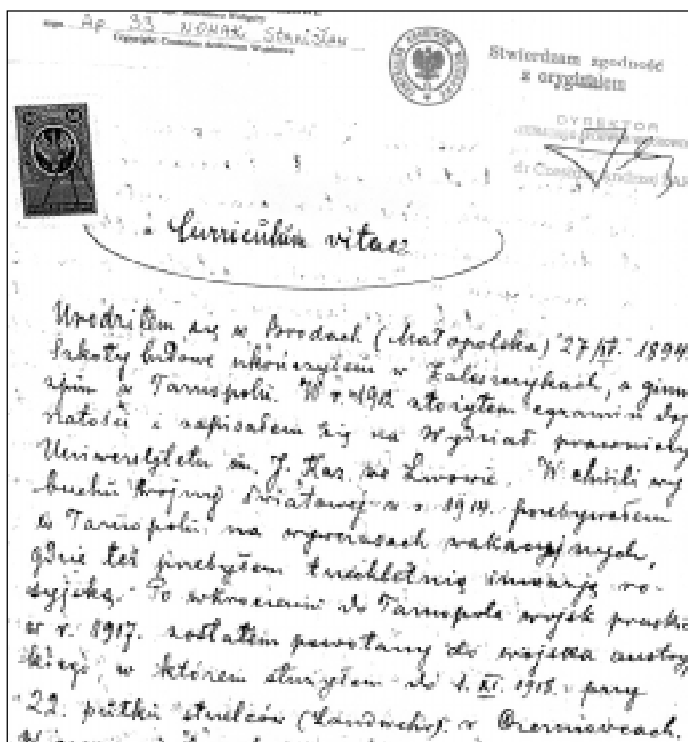 Ap. 33 NOWAK Stanisław
Stwierdzam zgodność
z oryginałem
DYREKTOR
Curriculum vitae
Urodziłem się w Brodach (Małopolska) 27/XI. 1894
Szkoły ludowe ukończyłem w Zaleszczykach, a gimna
zjum w Tarnopolu. W r. 1912 złożyłem egzamin doj
rzałości i zapisałem się na Wydział prawniczy
Uniwersytetu im. J. Kaz. we Lwowie. W chwili wy
buchu wojny światowej w r. 1914. przebywałem
w Tarnopolu na wywczasach wakacyjnych,
gdzie też przebyłem trzechletnią inwazję ro-
syjską. Po wkroczeniu do Tarnopola wojsk pruskich
w r. 1917. zostałem powołany do wojska austryj
kiego, w którem służyłem do 1. XI. 1918. przy
22. pułku strzelców (Landwehr) w Czerniowcach.